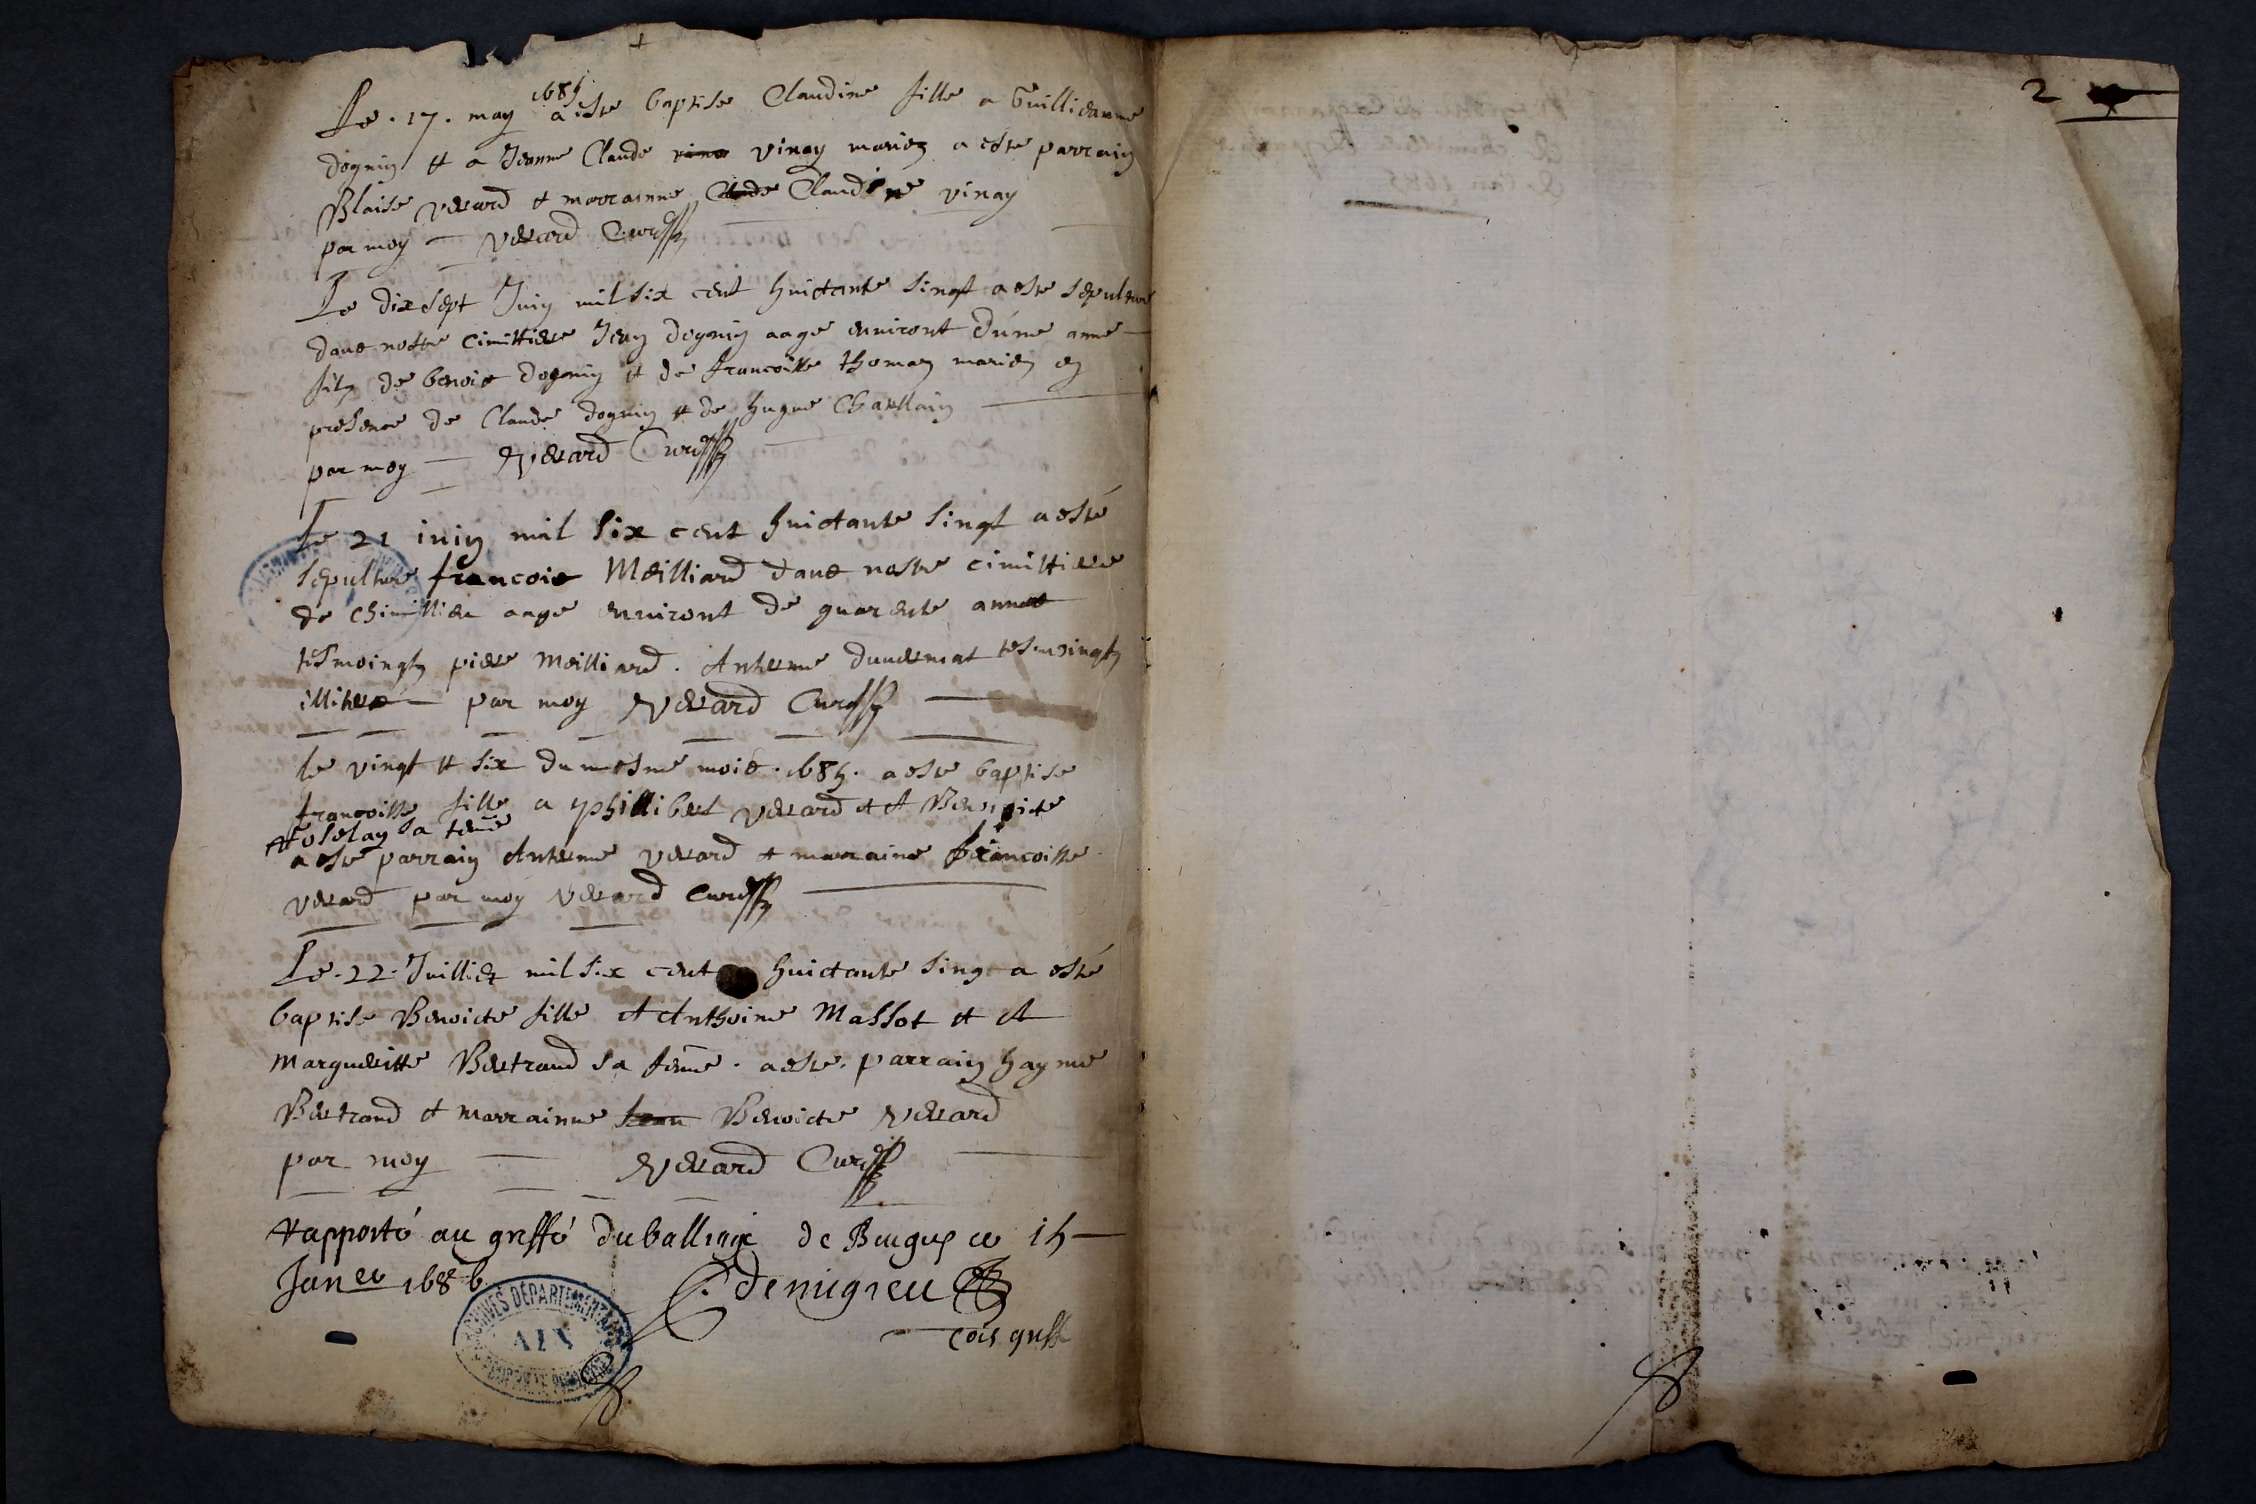 1685
Le . 17 . may a este baptise Claudine fille a Guilliaume
dognin et a Jeanne Claude vina vinay mariez a este parrain
Blaise verard et marrainne Claude Claudine vinay
par moy verard Curé
Le dixsept Juin mil six cent huictante sinqt a este sepulture
dans nostre cimittiere Jean dognin aage environt d'une anne
filz de benoit dognin et de francoisse thomas mariez en
presence de Claude dognin et de hugue
par moy verard Curé
Le 21 iuin mil six cent huictante sinqt a esté
sepulture francois Meilliard dans nostre cimittiere
de chimillieu aage environt de quarente annes
tesmoingtz piere Meilliard . Antheme tesmoingtz
illiteres par moy verard Curé
le vingt et six du mesme mois . 1685 . a este baptise
francoisse fille a phillibert verard et A Benoicte
sa feme
a este parrain Antheme verard et marraine francoisse
verard par moy verard Curé
Le . 22 . Juillier mil six cent huictante sinq a esté
baptise Benoicte fille A Anthoine Massot et A
Margueritte Bertrand sa feme . a este . parrain hayme
Bertrand et marrainne Benoicte verard
par moy verard Curé
Rapporté au greffe du balliage de Bugey ce 15
Janer 1686
Demigieu
cois greff
ARCHIVES DÉPARTEMENTALES
AIN
2